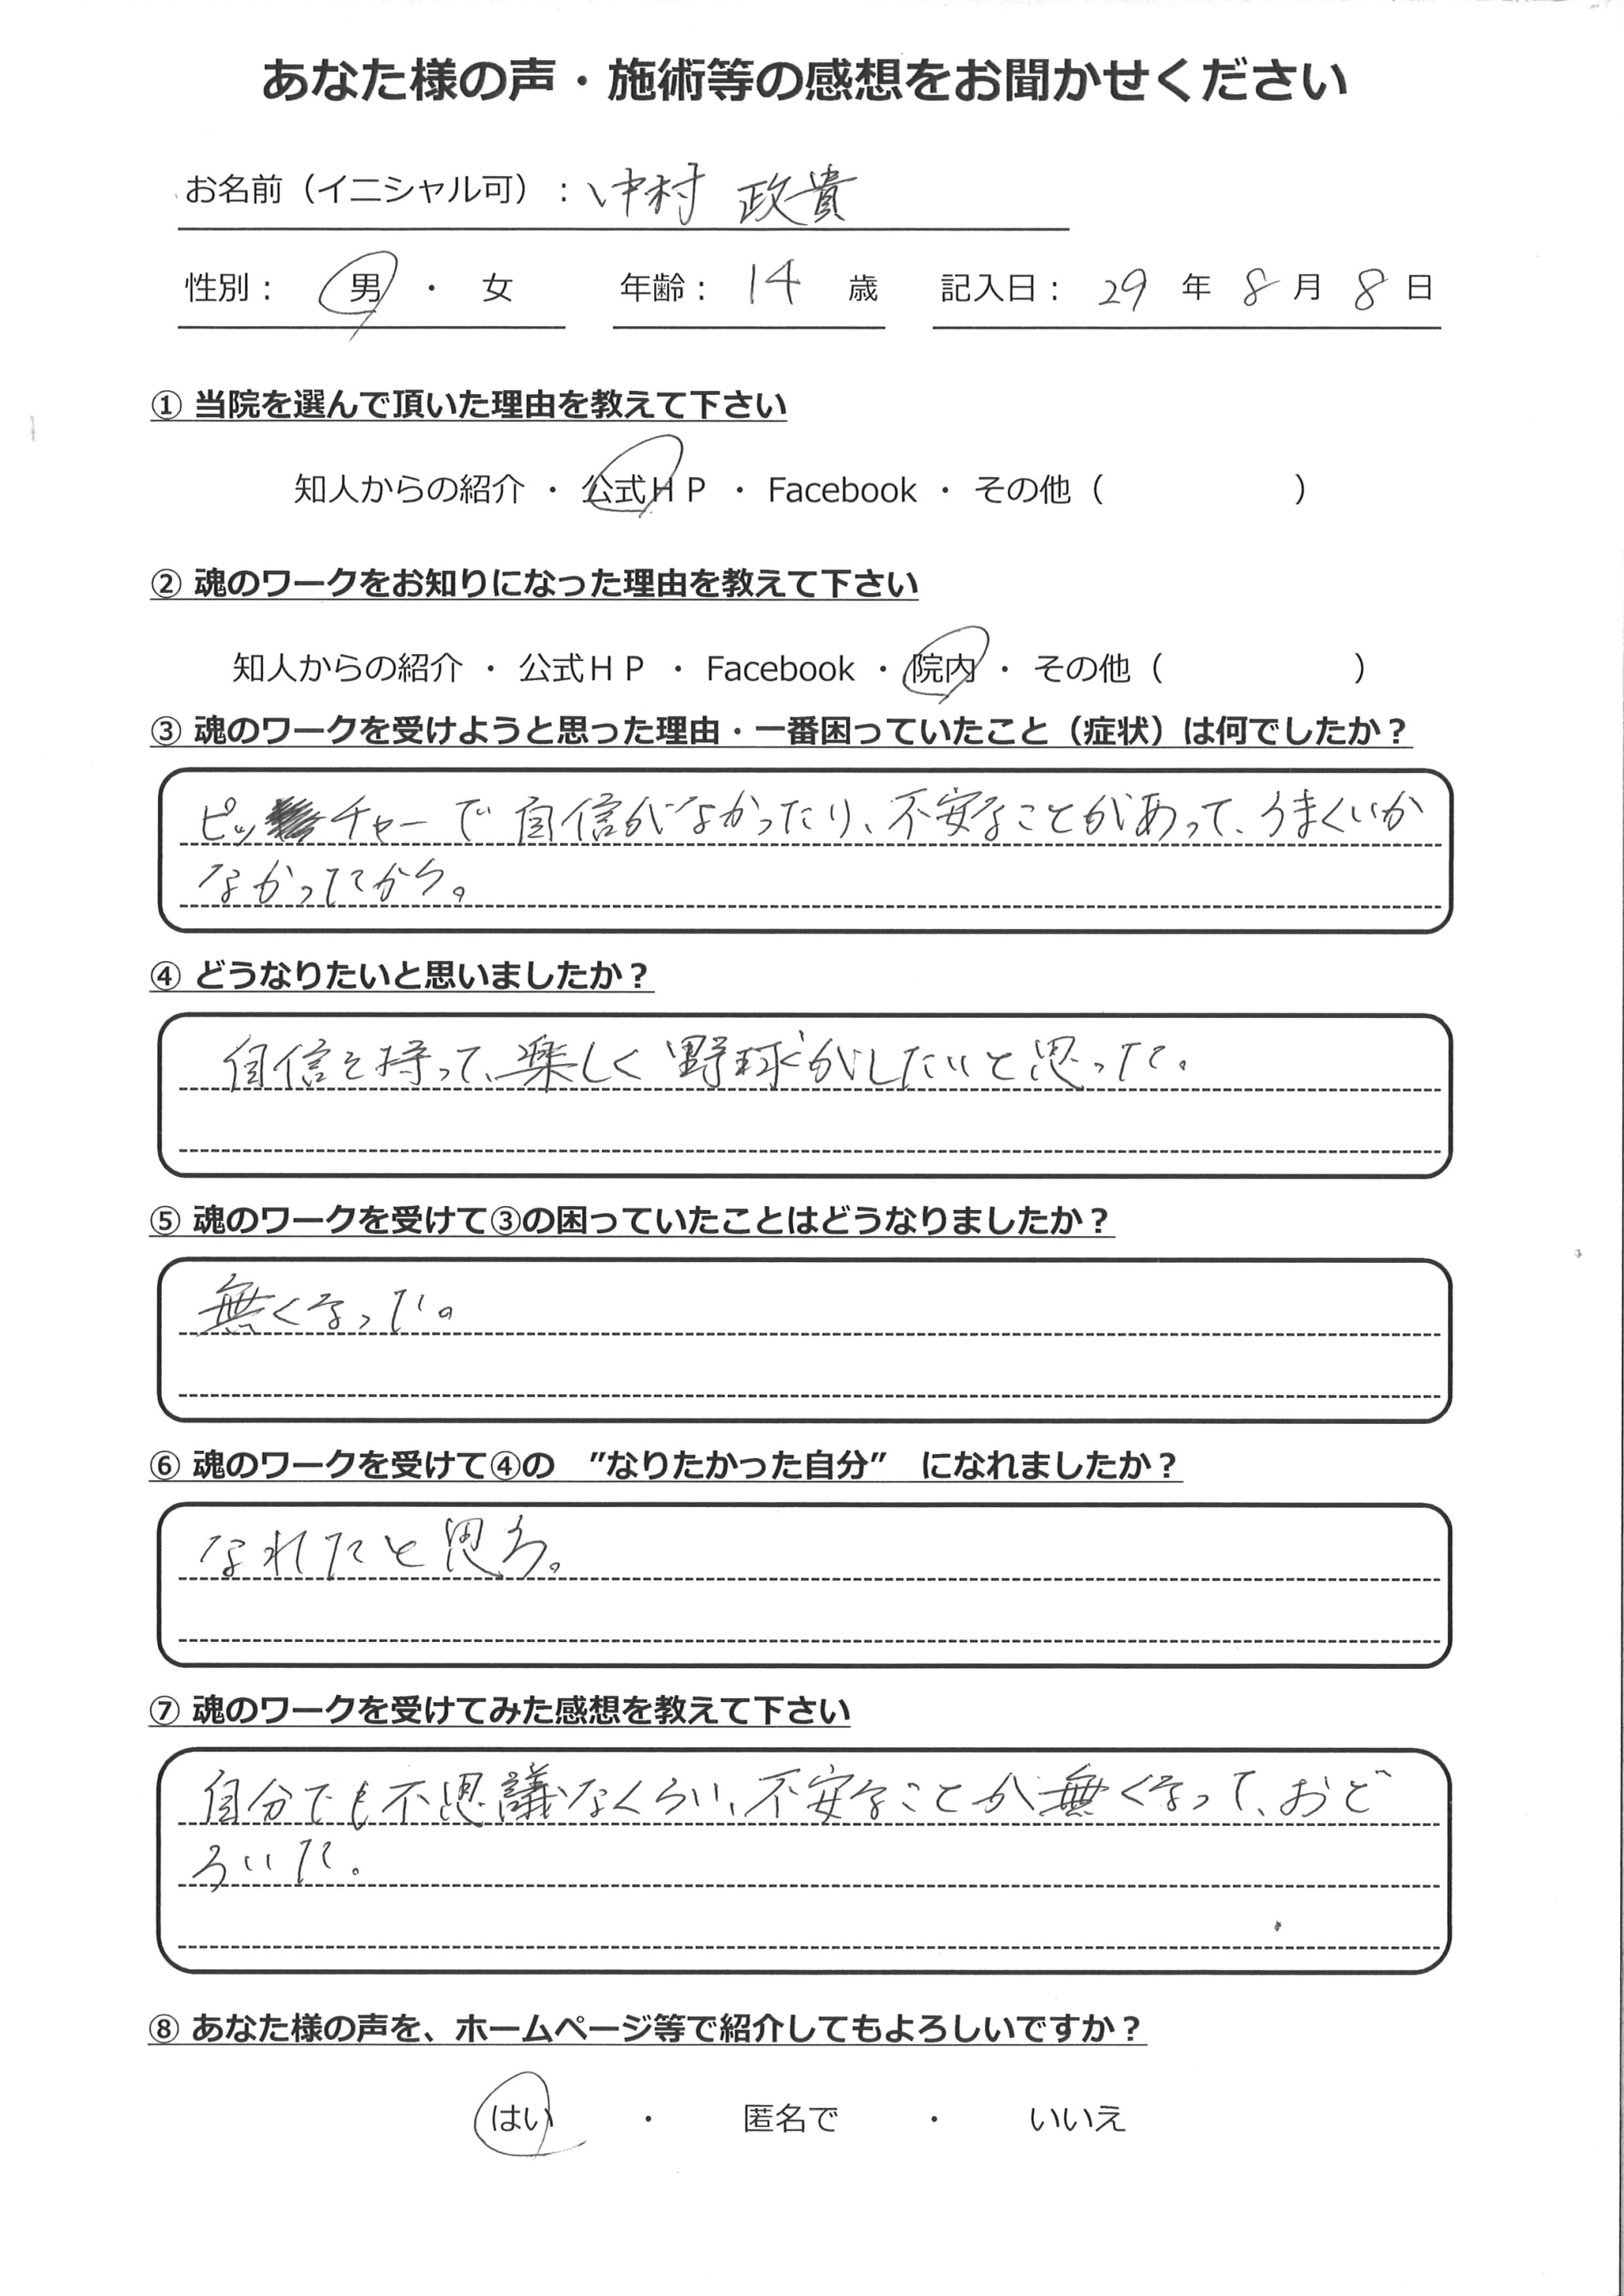 あなた様の声・施術等の感想をお聞かせください
お名前（イニシャル可）：中村 政貴
性別： 男 ・ 女 年齢： 14 歳 記入日： 29 年 8 月 8 日
① 当院を選んで頂いた理由を教えて下さい
知人からの紹介 ・ 公式ＨＰ ・ Facebook ・ その他（ ）
② 魂のワークをお知りになった理由を教えて下さい
知人からの紹介 ・ 公式ＨＰ ・ Facebook ・ 院内 ・ その他（ ）
③ 魂のワークを受けようと思った理由・一番困っていたこと（症状）は何でしたか？
ピッチャーで自信がなかったり、不安なことがあって、うまくいか
なかったから。
④ どうなりたいと思いましたか？
自信を持って、楽しく野球がしたいと思った。
⑤ 魂のワークを受けて③の困っていたことはどうなりましたか？
無くなった。
⑥ 魂のワークを受けて④の ”なりたかった自分” になれましたか？
なれたと思う。
⑦ 魂のワークを受けてみた感想を教えて下さい
自分でも不思議なくらい、不安なことが無くなって、おど
ろいた。
⑧ あなた様の声を、ホームページ等で紹介してもよろしいですか？
はい ・ 匿名で ・ いいえ